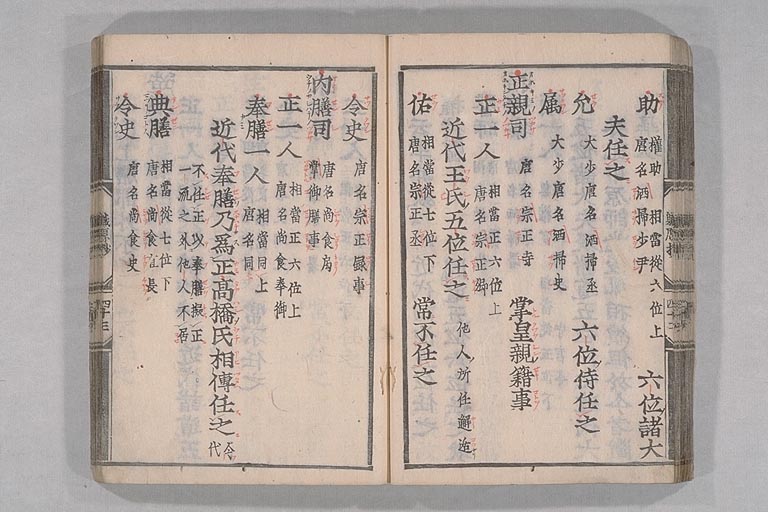 助 權助 相當從六位上 六位諸大
唐名洒掃少尹
夫任之
允 大少唐名洒掃丞 六位侍任之
属 大少唐名洒掃史
正親司 唐名宗正寺 掌皇親籍事
正一人 相當正六位上
唐名宗正卿
近代王氏五位任之 他人所任邂逅
佑 相當從七位下 常不任之
唐名宗正丞
令史 唐名宗正録事
内膳司 唐名尚食局
掌御膳事
正一人 相當正六位上
唐名尚食奉御
奉膳一人 相當同上
唐名同
近代奉膳乃爲正高橋氏相傳任之
代
不任正以奉膳擬正
一流之外他人不居
典膳 相當從七位下
唐名尚食直長
令史 唐名尚食史
職原抄
四十三